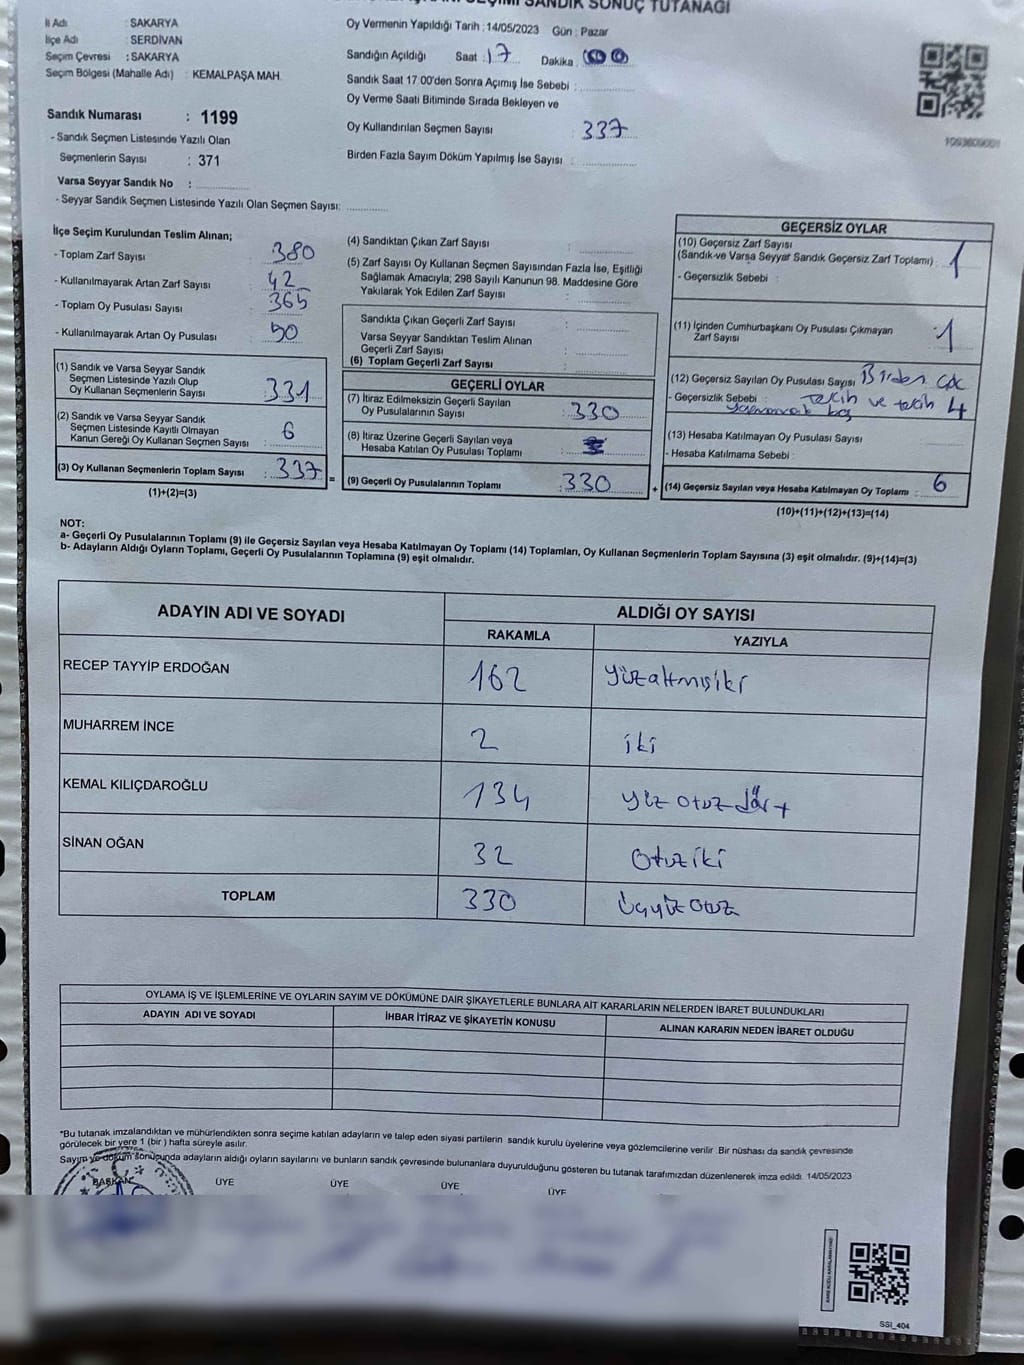 SEÇİMİ SANDIK SONUÇ TUTANAĞI
İl Adı : SAKARYA
İlçe Adı : SERDİVAN
Seçim Çevresi : SAKARYA
Seçim Bölgesi (Mahalle Adı) : KEMALPAŞA MAH.
Sandık Numarası : 1199
- Sandık Seçmen Listesinde Yazılı Olan
Seçmenlerin Sayısı : 371
Varsa Seyyar Sandık No :
- Seyyar Sandık Seçmen Listesinde Yazılı Olan Seçmen Sayısı:
Oy Vermenin Yapıldığı Tarih : 14/05/2023 Gün : Pazar
Sandığın Açıldığı Saat : 17 Dakika :
Sandık Saat 17:00'den Sonra Açımış İse Sebebi :
Oy Verme Saati Bitiminde Sırada Bekleyen ve
Oy Kullandırılan Seçmen Sayısı : 337
Birden Fazla Sayım Döküm Yapılmış İse Sayısı :
İlçe Seçim Kurulundan Teslim Alınan;
- Toplam Zarf Sayısı : 380
- Kullanılmayarak Artan Zarf Sayısı : 42
- Toplam Oy Pusulası Sayısı : 365
- Kullanılmayarak Artan Oy Pusulası : 50
(1) Sandık ve Varsa Seyyar Sandık
Seçmen Listesinde Yazılı Olup
Oy Kullanan Seçmenlerin Sayısı : 331
(2) Sandık ve Varsa Seyyar Sandık
Seçmen Listesinde Kayıtlı Olmayan
Kanun Gereği Oy Kullanan Seçmen Sayısı : 6
(3) Oy Kullanan Seçmenlerin Toplam Sayısı : 337
(1)+(2)=(3)
=
(4) Sandıktan Çıkan Zarf Sayısı :
(5) Zarf Sayısı Oy Kullanan Seçmen Sayısından Fazla İse, Eşitliği
Sağlamak Amacıyla; 298 Sayılı Kanunun 98. Maddesine Göre
Yakılarak Yok Edilen Zarf Sayısı :
Sandıkta Çıkan Geçerli Zarf Sayısı :
Varsa Seyyar Sandıktan Teslim Alınan
Geçerli Zarf Sayısı :
(6) Toplam Geçerli Zarf Sayısı :
GEÇERLİ OYLAR
(7) İtiraz Edilmeksizin Geçerli Sayılan
Oy Pusulalarının Sayısı : 330
(8) İtiraz Üzerine Geçerli Sayılan veya
Hesaba Katılan Oy Pusulası Toplamı :
(9) Geçerli Oy Pusulalarının Toplamı : 330
+
GEÇERSİZ OYLAR
(10) Geçersiz Zarf Sayısı
(Sandık ve Varsa Seyyar Sandık Geçersiz Zarf Toplamı) : 1
- Geçersizlik Sebebi :
(11) İçinden Cumhurbaşkanı Oy Pusulası Çıkmayan
Zarf Sayısı : 1
(12) Geçersiz Sayılan Oy Pusulası Sayısı : Birden çok
- Geçersizlik Sebebi : tercih ve tercih 4
boş
(13) Hesaba Katılmayan Oy Pusulası Sayısı
- Hesaba Katılmama Sebebi :
(14) Geçersiz Sayılan veya Hesaba Katılmayan Oy Toplamı : 6
(10)+(11)+(12)+(13)=(14)
NOT:
a- Geçerli Oy Pusulalarının Toplamı (9) ile Geçersiz Sayılan veya Hesaba Katılmayan Oy Toplamı (14) Toplamları, Oy Kullanan Seçmenlerin Toplam Sayısına (3) eşit olmalıdır. (9)+(14)=(3)
b- Adayların Aldığı Oyların Toplamı, Geçerli Oy Pusulalarının Toplamına (9) eşit olmalıdır.
ADAYIN ADI VE SOYADI ALDIĞI OY SAYISI
RAKAMLA YAZIYLA
RECEP TAYYİP ERDOĞAN 162 yüzaltmışiki
MUHARREM İNCE 2 iki
KEMAL KILIÇDAROĞLU 134 yüz otuz dört
SİNAN OĞAN 32 otuziki
TOPLAM 330 üçyüz otuz
OYLAMA İŞ VE İŞLEMLERİNE VE OYLARIN SAYIM VE DÖKÜMÜNE DAİR ŞİKAYETLERLE BUNLARA AİT KARARLARIN NELERDEN İBARET BULUNDUKLARI
ADAYIN ADI VE SOYADI İHBAR İTİRAZ VE ŞİKAYETİN KONUSU ALINAN KARARIN NEDEN İBARET OLDUĞU
*Bu tutanak imzalandıktan ve mühürlendikten sonra seçime katılan adayların ve talep eden siyasi partilerin sandık kurulu üyelerine veya gözlemcilerine verilir .Bir nüshası da sandık çevresinde
görülecek bir yere 1 (bir ) hafta süreyle asılır.
Sayım ve döküm sonucunda adayların aldığı oyların sayılarını ve bunların sandık çevresinde bulunanlara duyurulduğunu gösteren bu tutanak tarafımızdan düzenlenerek imza edildi. 14/05/2023
BAŞKAN ÜYE ÜYE ÜYE ÜYE
SSI_404